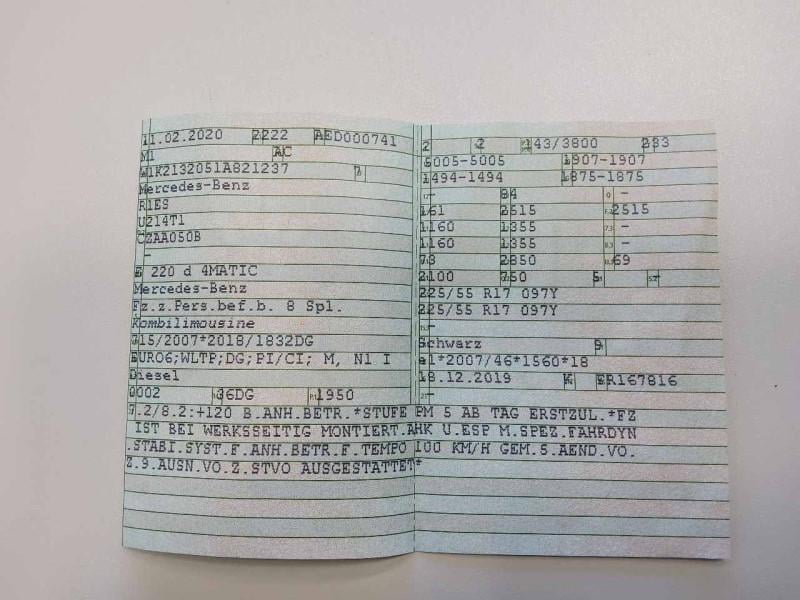 11.02.2020 2222 AED000741
M1 AC
W1K2132051A821237
Mercedes-Benz
R1ES
U214T1
CZAA050B
–
E 220 d 4MATIC
Mercedes-Benz
Fz.z.Pers.bef.b. 8 Spl.
Kombilimousine
715/2007*2018/1832DG
EURO6;WLTP;DG;PI/CI; M, N1 I
Diesel
0002 36DG 1950
2 2 143/3800 233
5005-5005 1907-1907
1494-1494 1875-1875
– 84 –
161 2515 2515
1160 1355 –
1160 1355 –
73 2850 69
2100 750 5 –
225/55 R17 097Y
225/55 R17 097Y
–
Schwarz 9
e1*2007/46*1560*18
18.12.2019 K ER167816
–
7.2/8.2:+120 B.ANH.BETR.*STUFE PM 5 AB TAG ERSTZUL.*FZ
IST BEI WERKSSEITIG MONTIERT.AHK U.ESP M.SPEZ.FAHRDYN
.STABI.SYST.F.ANH.BETR.F.TEMPO 100 KM/H GEM.5.AEND.VO.
Z.9.AUSN.VO.Z.STVO AUSGESTATTET*